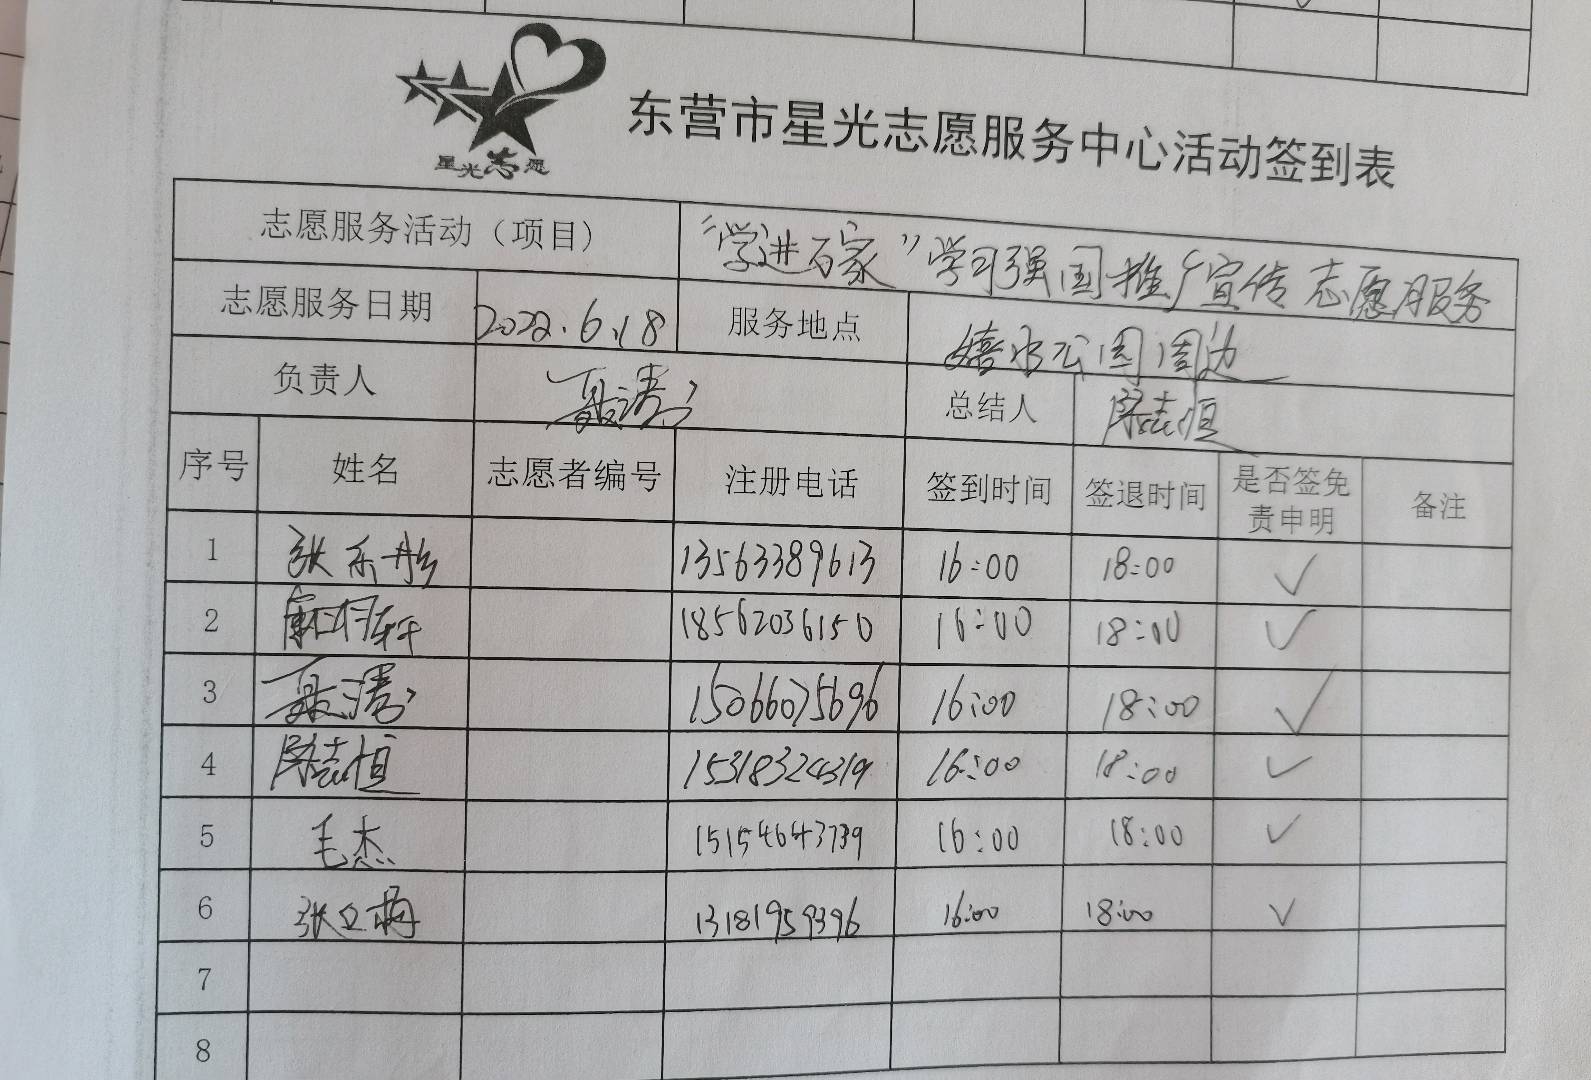 星光志愿
东营市星光志愿服务中心活动签到表
志愿服务活动（项目） “学进百家”学习强国推广宣传志愿服务
志愿服务日期 2022.6.18 服务地点 公园周边
负责人 聂涛 总结人 志恒
序号 姓名 志愿者编号 注册电话 签到时间 签退时间 是否签免责申明 备注
1 张乐彤 13563389613 16:00 18:00 ✓
2 18562036150 16:00 18:00 ✓
3 聂涛 15066075696 16:00 18:00 ✓
4 志恒 15318324319 16:00 18:00 ✓
5 毛杰 15154643739 16:00 18:00 ✓
6 张立梅 13181959396 16:00 18:00 ✓
7
8